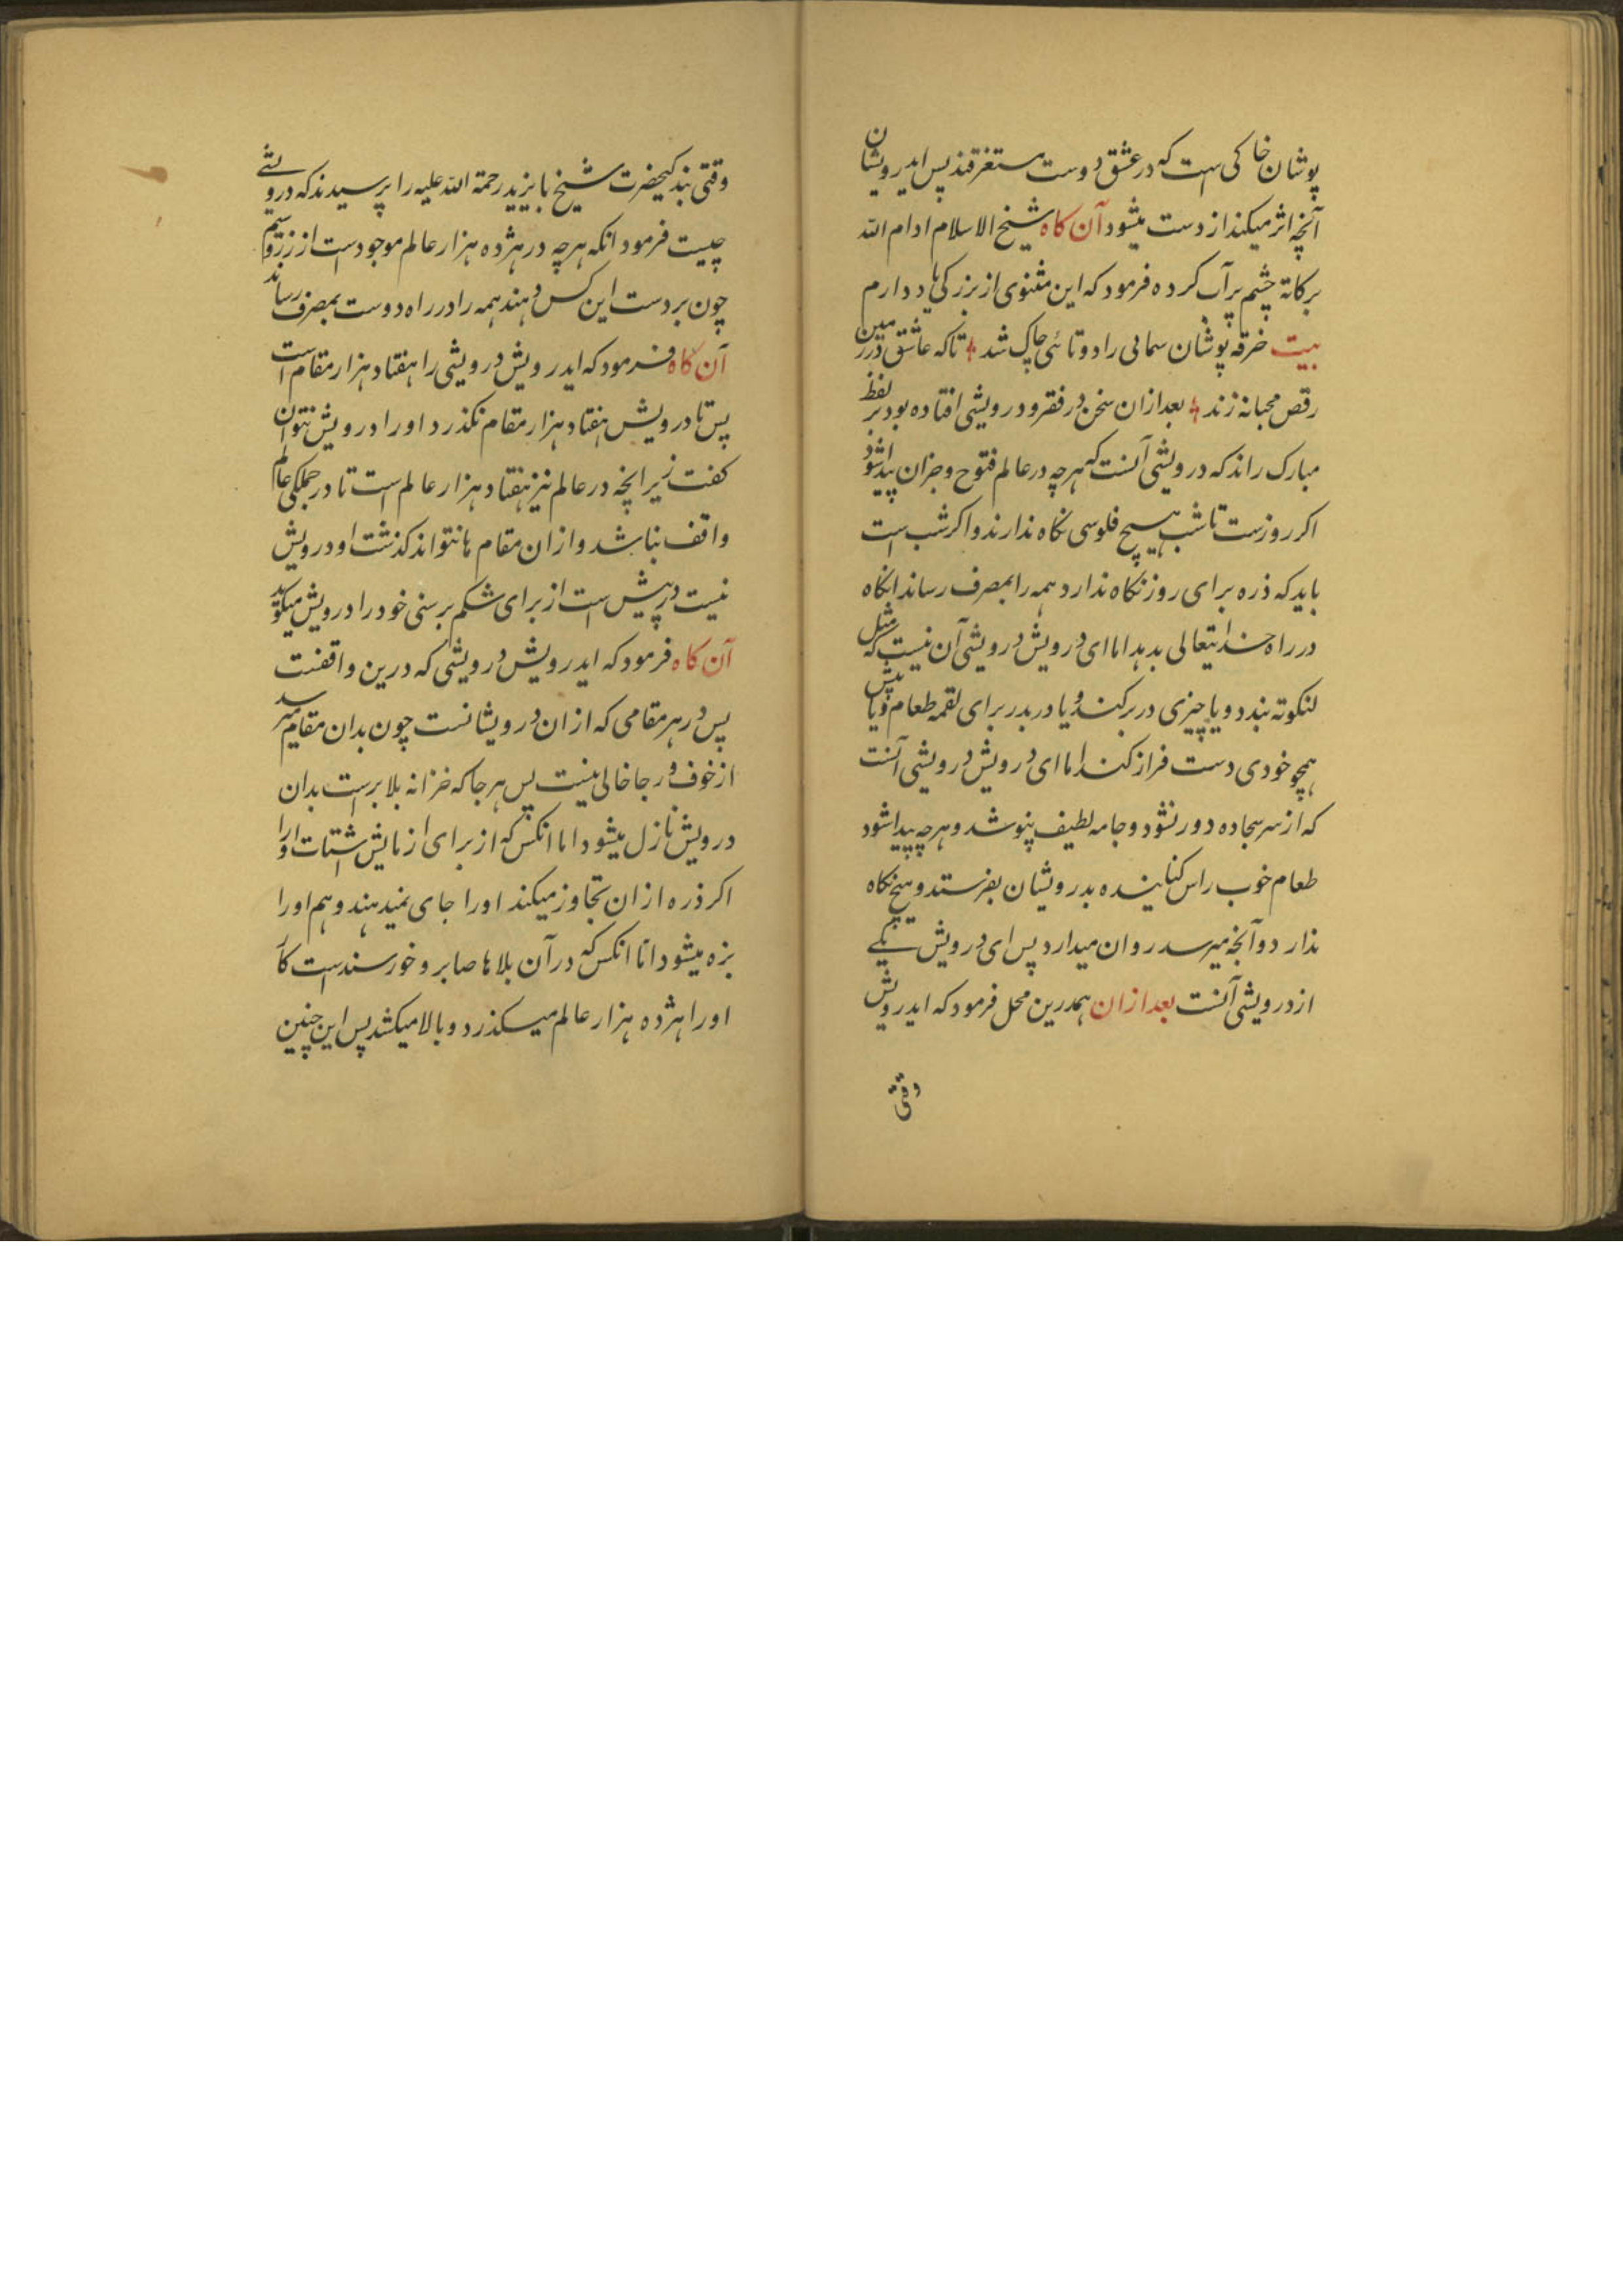 پوشان خاکی است که در عشق دوست مستغرقند پس ایدرویشان
آنچه اثر میکند از دست میشود آن کاه شیخ الاسلام ادام الله
برکاته چشم پرآب کرده فرمود که این مثنوی از بزرکی یاد دارم
بیت خرقه پوشان سمایی را دوتائی چاک شد تا که عاشق در زمین
رقص محبانه زند بعد ازان سخن در فقر و درویشی افتاده بود بر لفظ
مبارک راند که درویشی آنست که هرچه در عالم فتوح و جزان پیدا شود
اکر روزست تا شب هیچ فلوسی نکاه ندارند و اکر شب است
باید که ذره برای روز نکاه ندارد همه را بمصرف رساند انکاه
در راه خدایتعالی بدهد اما ای درویش درویشی آن نیست که مثل
لنکوته بندد و یا چیزی در بر کند و یا در بدر برای لقمه طعام و یا پیش
همچو خودی دست فراز کند اما ای درویش درویشی آنست
که از سر سجاده دور نشود و جامه لطیف پنوشد و هرچه پیدا شود
طعام خوب راس کنایند ه بدرویشان بفرستد و هیچ نکاه
ندارد و آنچه میرسد روان میدارد پس ای درویش یکے
از درویشی آنست بعد ازان همدرین محل فرمود که ایدرویش
وقتی
وقتی بندکیحضرت شیخ بایزید رحمة الله علیه را پرسیدند که درویشے
چیست فرمود انکه هرچه در هژده هزار عالم موجودست از زر و سیم
چون بر دست این کس دهند همه را در راه دوست بمصرف رساند
آن کاه فرمود که ایدرویش درویشی را هفتاد هزار مقام است
پس تا درویش هفتاد هزار مقام نکذرد او را درویش نتوان
کفت زیرانچه در عالم نیز هفتاد هزار عالم است تا در جملکی عالم
واقف نباشد و ازان مقام ها نتواند کذشت او درویش
نیست درپیش است از برای شکم پرسنی خود را درویش میکوید
آن کاه فرمود که ایدرویش درویشی که درین واقفنت
پس در هر مقامی که ازان درویشانست چون بدان مقام میرسد
از خوف و رجا خالی نیست پس هرجا که خزانه بلا برست بدان
درویش نازل میشود اما انکس که از برای ازمایش اشتات او را
اکر ذره ازان تجاوز میکند او را جای نمیدهند و هم او را
بزه میشود امّا انکس که در آن بلاها صابر و خورسندست
او را هژده هزار عالم میکذرد و بالا میکشد پس این چنین